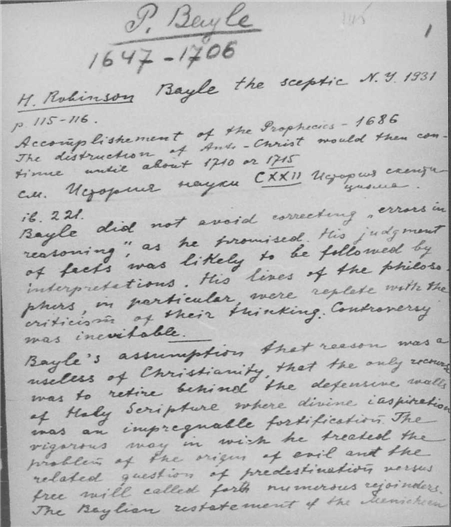 P. Bayle
1647-1706
1
H. Robinson Bayle the sceptic N.Y. 1931
p 115-116.
Accomplishement of the Prophecies - 1686
The distruction of Anti-Christ would then con-
tinue until about 1710 or 1715
см. История науки CXXII История скепти
цизма.
ib. 221.
Bayle did not avoid correcting "errors in
reasoning", as he promised. His judgment
of facts was likely to be followed by
interpretations. His lives of the philoso-
phers, in particular, were replete with the
criticism of their thinking. Controversy
was inevitable.
Bayle's assumption that reason was a
useless of Christianity, that the only recourse
was to retire behind the defensive walls
of Holy Scripture where divine inspiration
was an impregnable fortification. The
vigorous way in wich he treated the
problem of the origin of evil and the
related question of predestination versus
free will called forth numerous rejoinders.
The Baylian restatement of the